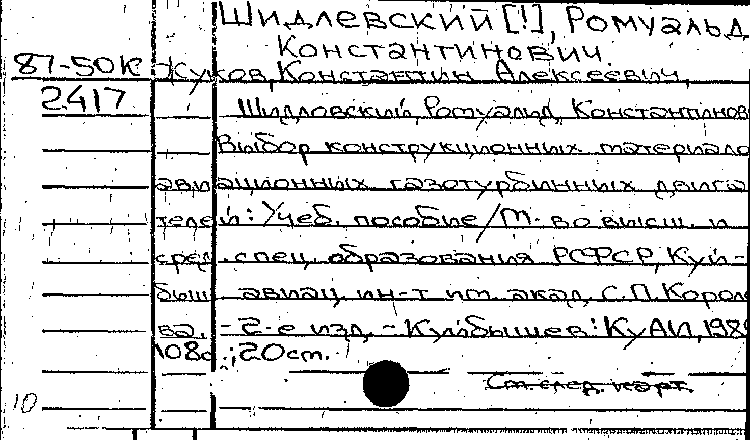 Шидлевский [!], Ромуальд
Константинович.
87-50К Жуков, Константин Алексеевич,
2417 Шидловский, Ромуальд Константинов
Выбор конструкционных материало
авиационных газотурбинных двига
телей: Учеб. пособие / М-во высш. и
сред. спец. образования РСФСР, Куй-
быш. авиац. ин-т им. акад. С.П. Короле
ва. - 2-е изд. - Куйбышев: КуАИ, 198
108с.; 20см.
См. след. карт.
10